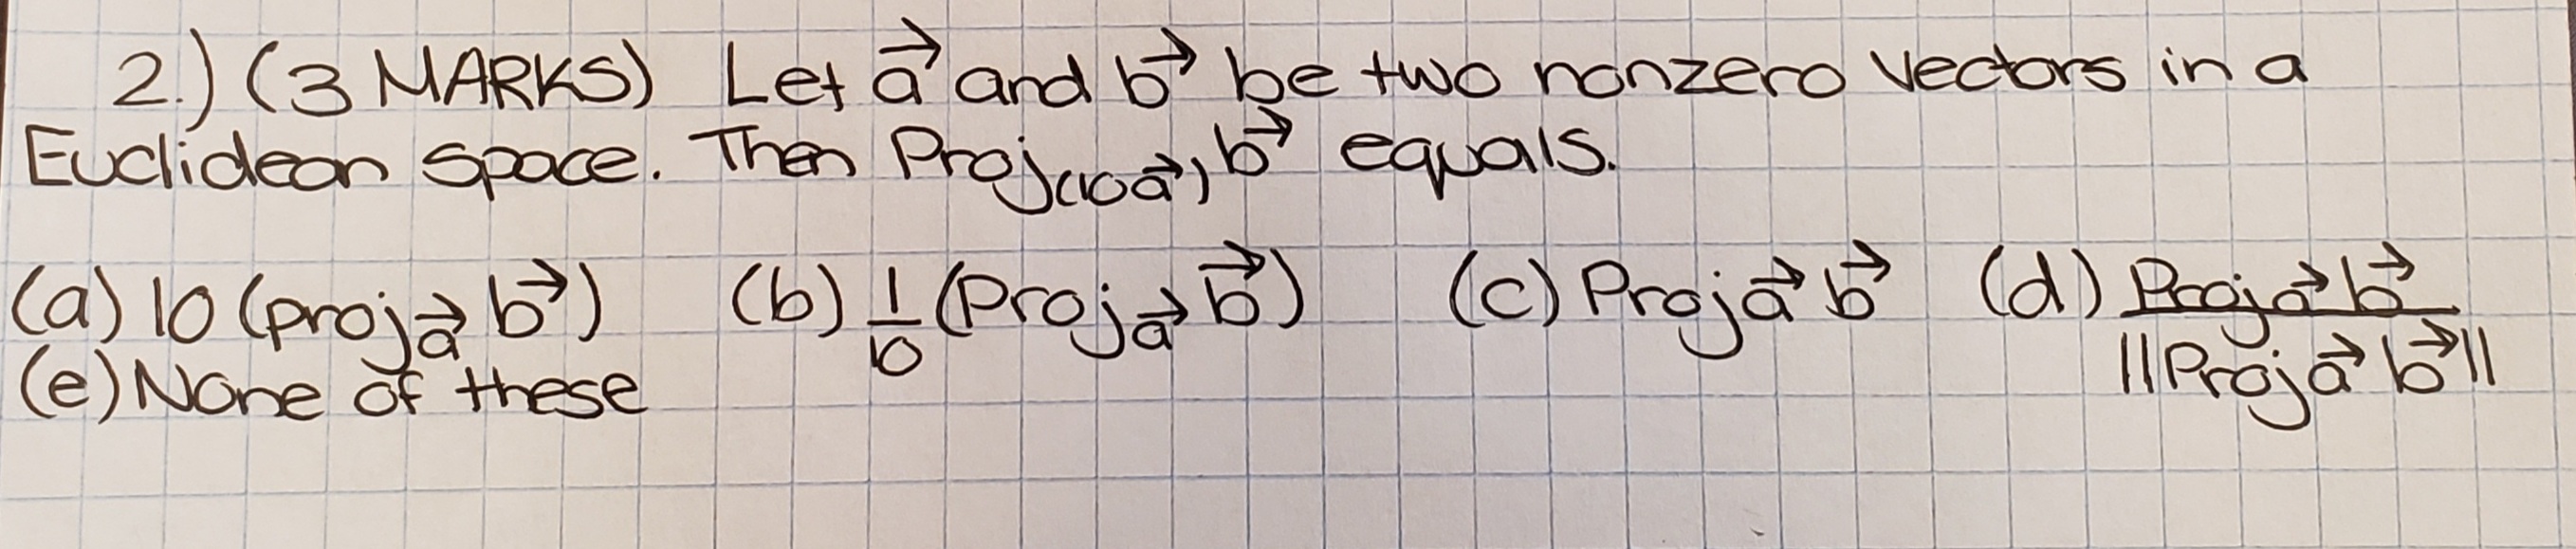 2.) (3 MARKS) Let a⃗ and b⃗ be two nonzero vectors in a
Euclidean space. Then Proj₍₁₀ₐ⃗₎ b⃗ equals.
(a) 10 (projₐ⃗ b⃗) (b) 1/10 (Projₐ⃗ b⃗) (c) Proj a⃗ b⃗ (d) Proj a⃗ b⃗ / ||Proj a⃗ b⃗||
(e) None of these